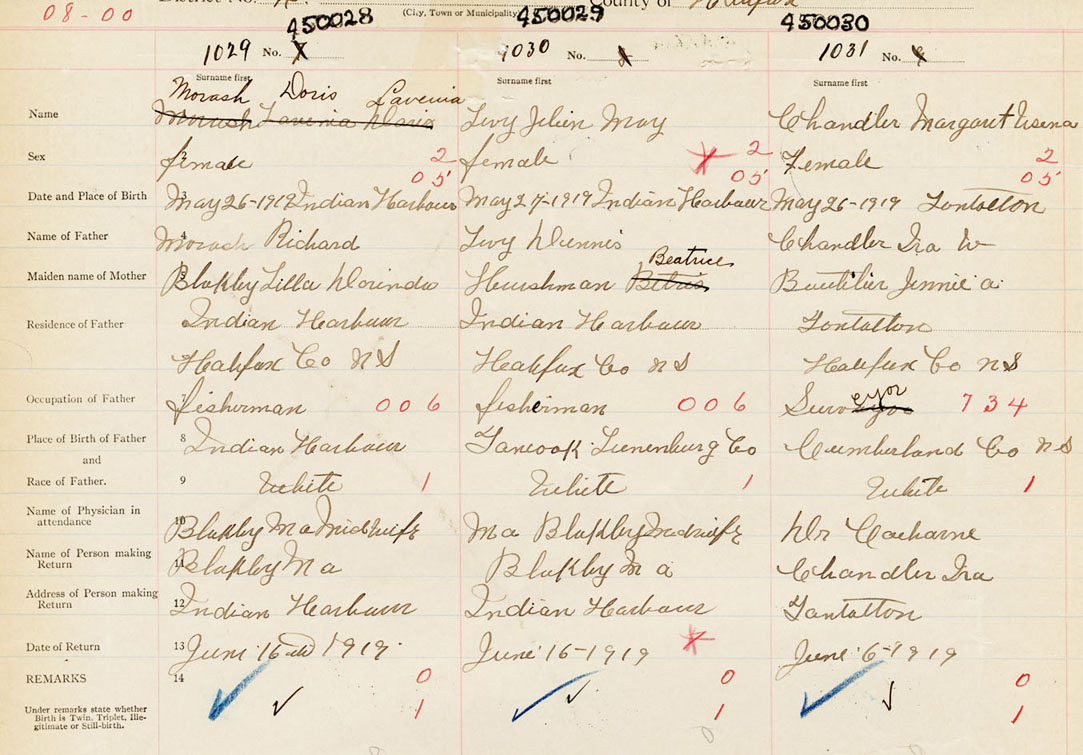 08-00
(City, Town or Municipality) County of Halifax
450028 450029 450030
1029 No. 1030 No. 1031 No.
Surname first Surname first Surname first
Morash Doris Lavenia
Name Morash Lavenia Doris Levy Jelien May Chandler Margaret
Sex 2 female 2 female 2 Female 2
05 05 05
Date and Place of Birth 3 May 26-1919 Indian Harbour May 27-1919 Indian Harbour May 26-1919 Tantallon
Name of Father 4 Morash Richard Levy Dennis Chandler Ira W
Beatrice
Maiden name of Mother Blakley Lilla Dorinda Hurshman Betris Boutilier Jennie A.
Residence of Father Indian Harbour Indian Harbour Tantallon
Halifax Co N S Halifax Co N S Halifax Co N S
eyor
Occupation of Father fisherman 006 fisherman 006 Surv 734
Place of Birth of Father 8 Indian Harbour Tancook Lunenburg Co Cumberland Co N S
and
Race of Father. 9 White 1 White 1 White 1
Name of Physician in
attendance 10 Blakley Ma Midwife Ma Blakley Midwife Dr
Name of Person making
Return 11 Blakley Ma Blakley Ma Chandler Ira
Address of Person making
Return 12 Indian Harbour Indian Harbour Tantallon
Date of Return 13 June 16 1919. June 16-1919 June 6-1919
REMARKS 14 0 0 0
Under remarks state whether
Birth is Twin, Triplet, Ille-
gitimate or Still-birth. 1 1 1